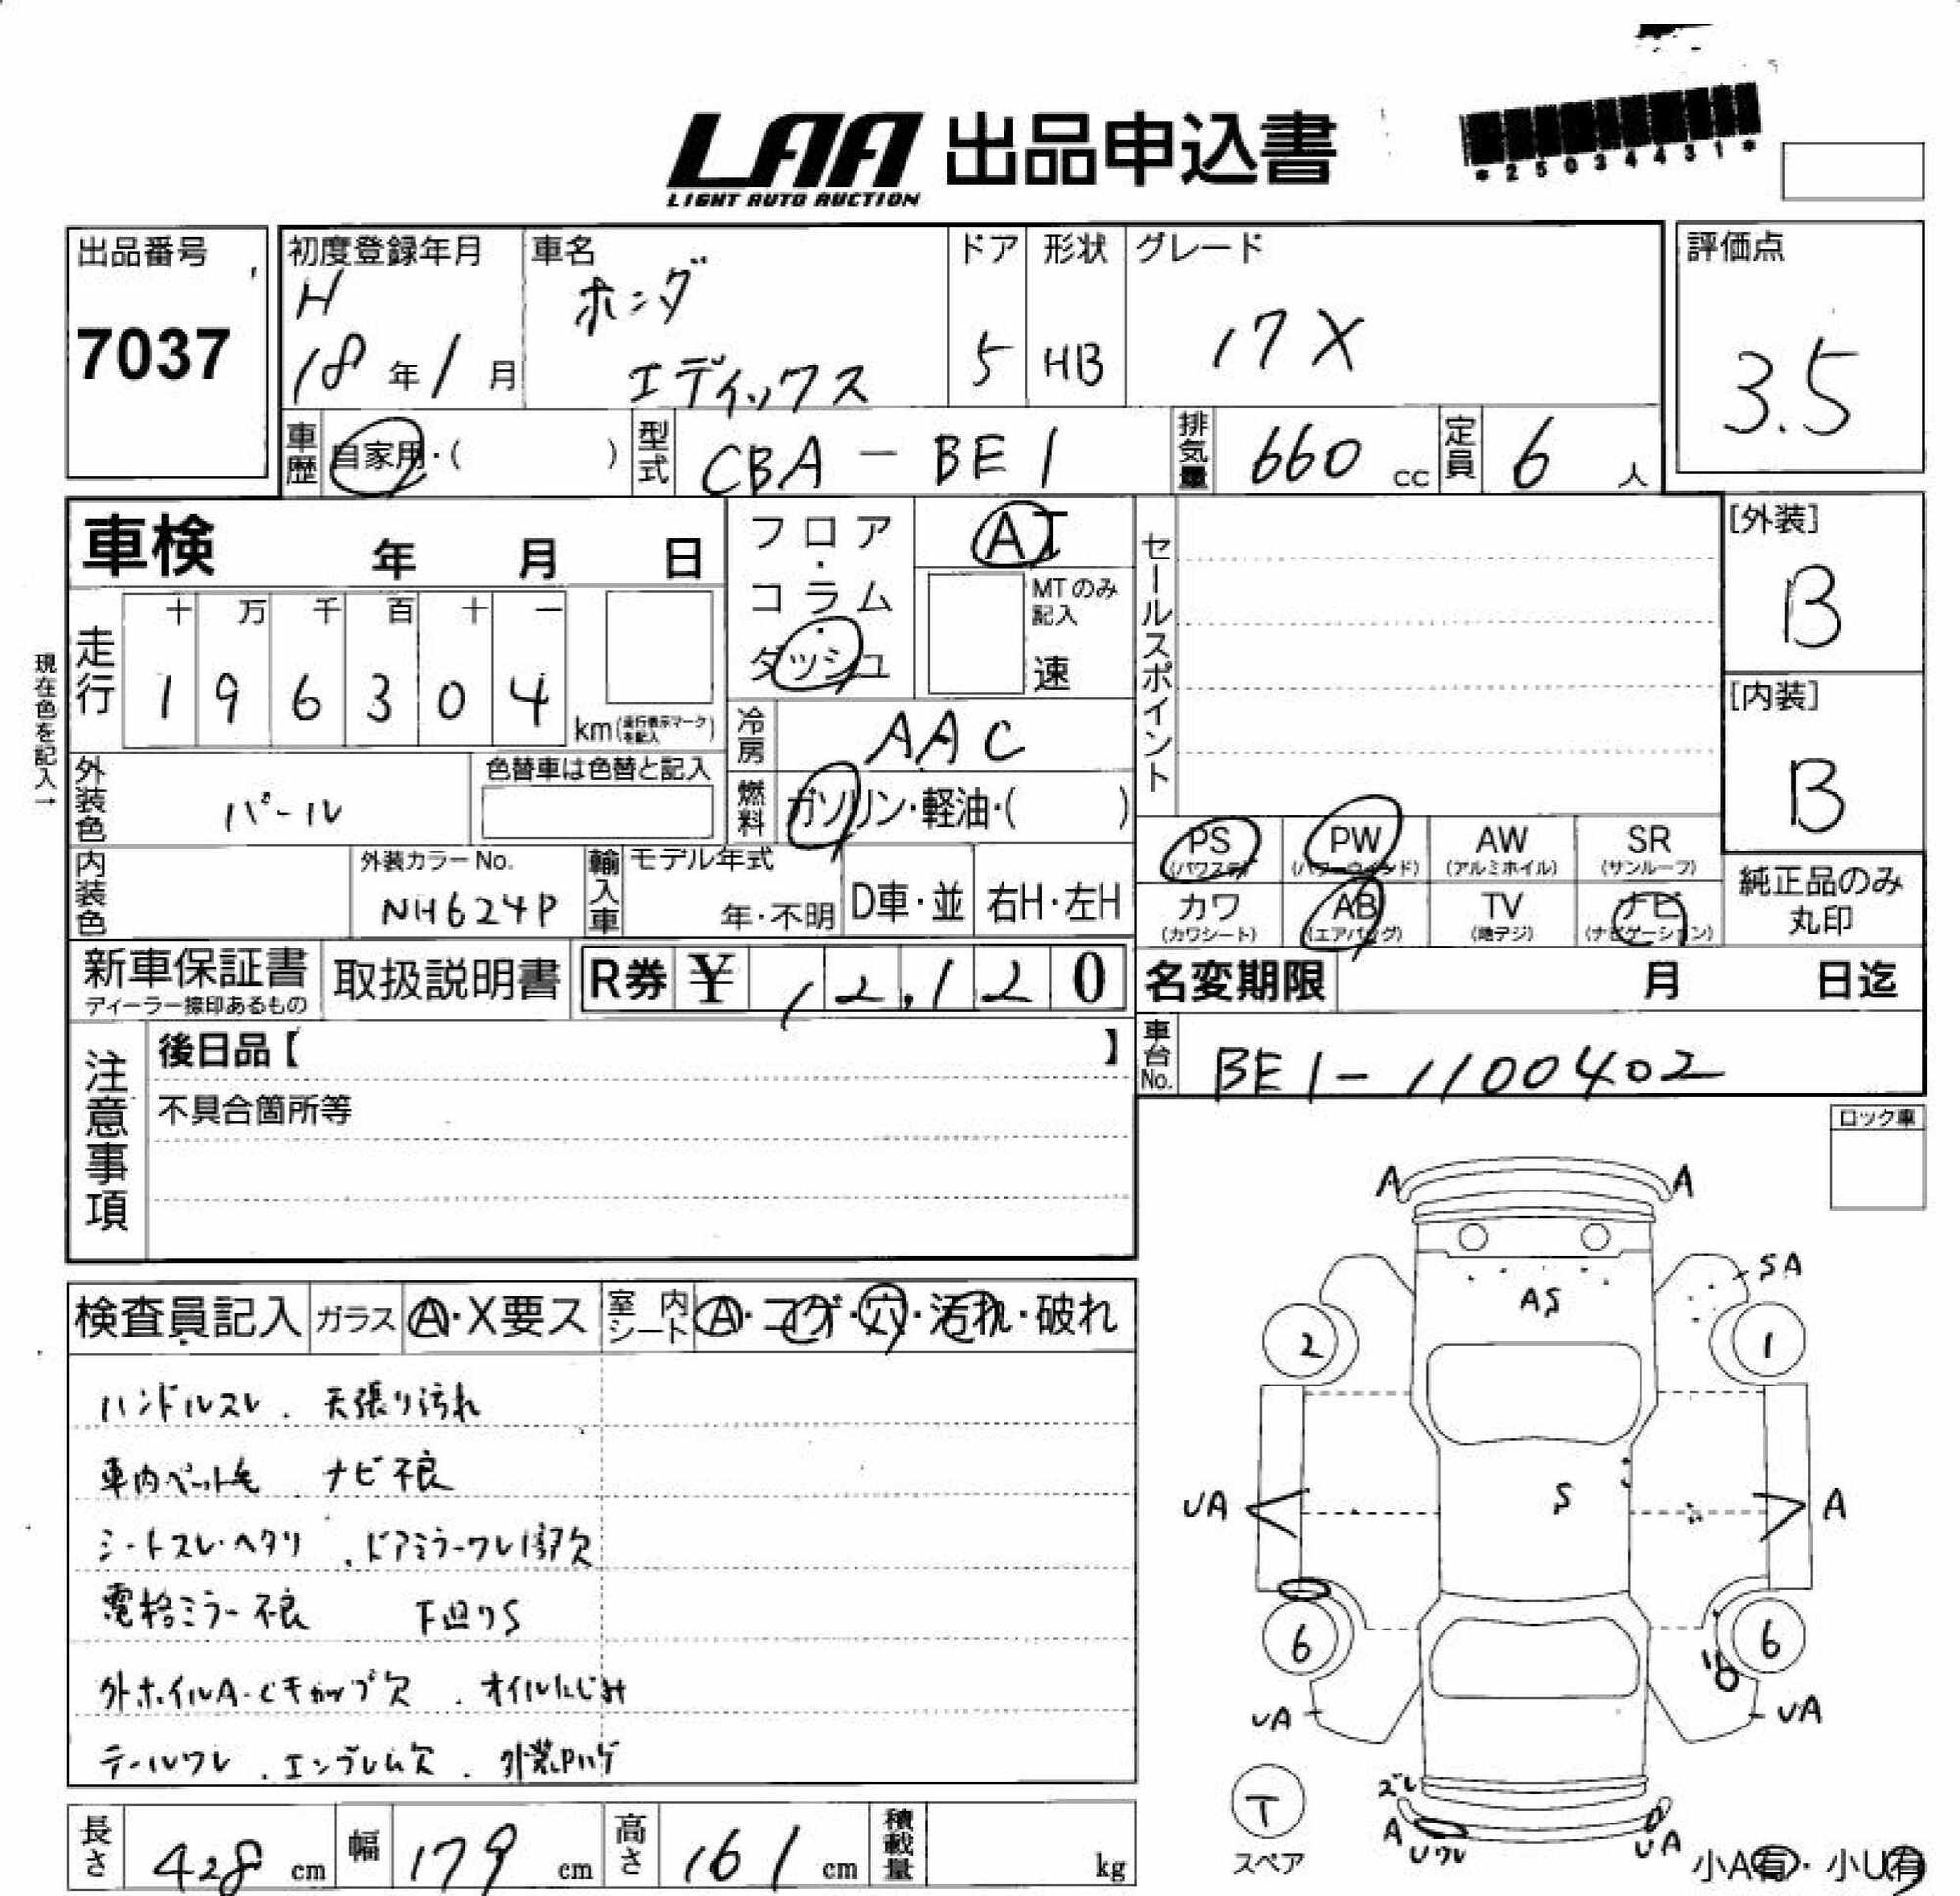 LAA 出品申込書
LIGHT AUTO AUCTION
*25034431*
出品番号
7037
初度登録年月
H
18年1月
車名
ホンダ
エディックス
ドア
5
形状
HB
グレード
17X
評価点
3.5
車歴
自家用・( )
型式
CBA-BE1
排気量
660 cc
定員
6 人
車検 年 月 日
現在色を記入→
走行
十 万 千 百 十 一
1 9 6 3 0 4
km(走行表示マークを記入)
フロア
・
コラム
・
ダッシュ
AT
MTのみ
記入
速
冷房
AAC
燃料
ガソリン・軽油・( )
セールスポイント
[外装]
B
[内装]
B
外装色
パール
色替車は色替と記入
内装色
外装カラーNo.
NH624P
輸入車
モデル年式
年・不明
D車・並
右H・左H
PS
(パワステ)
PW
(パワーウインド)
AW
(アルミホイル)
SR
(サンルーフ)
カワ
(カワシート)
AB
(エアバッグ)
TV
(地デジ)
ナビ
(ナビゲーション)
純正品のみ
丸印
新車保証書
ディーラー捺印あるもの
取扱説明書
R券 ¥ 12,120
名変期限 月 日迄
車台No.
BE1-1100402
注意事項
後日品【 】
不具合箇所等
ロック車
検査員記入
ガラス
A・X要ス
室内シート
A・コゲ・穴・汚れ・破れ
ハンドルスレ . 天張り汚れ
車内ペット毛 . ナビ不良
シートスレ・ヘタリ . ドアミラーワレ
電格ミラー不良 下廻りS
外ホイルA・Cキャップ欠 . オイルにじみ
テールワレ . エンブレム欠 . 外装Pハゲ
A
A
AS
SA
2
1
S
UA
A
6
6
UA
UA
T
スペア
ズレ
A
Uワレ
UA
小A有・小U有
長さ
428 cm
幅
179 cm
高さ
161 cm
積載量
kg